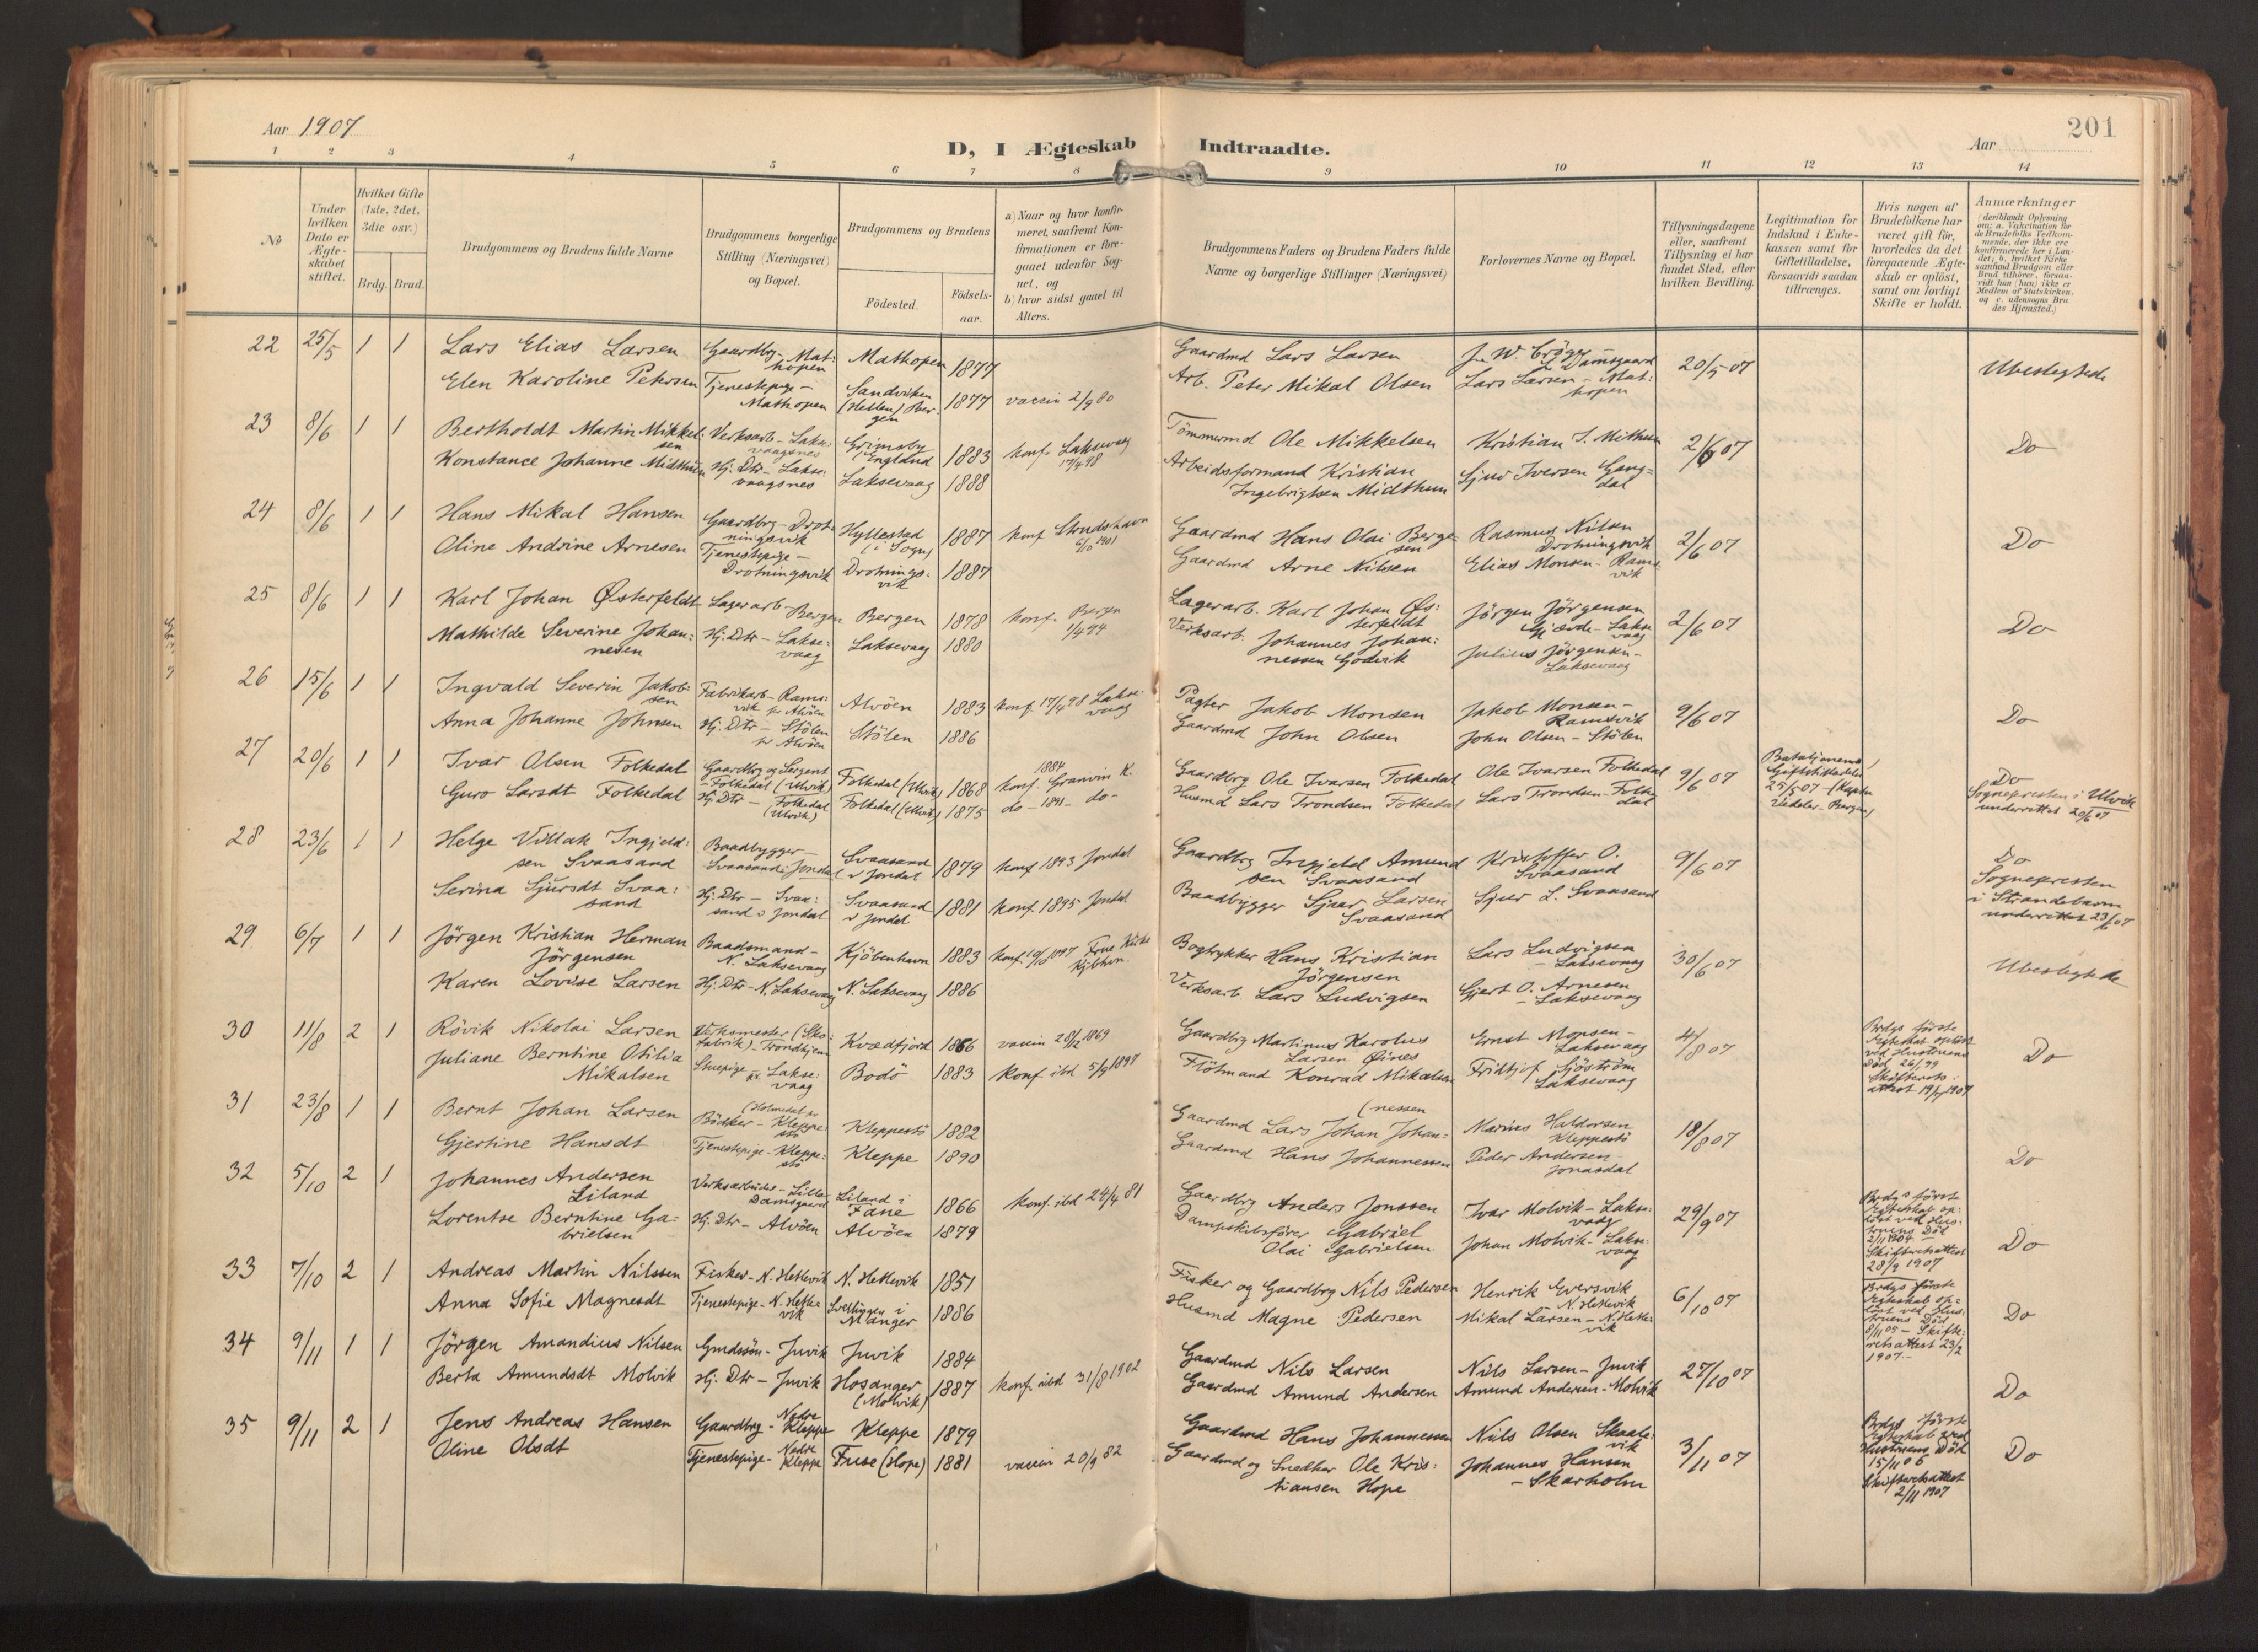 Aar 1907
D, I Ægteskab Indtraadte.
Aar
201
1 2 3 4 5 6 7 8 9 10 11 12 13 14
No
Under hvilken Dato er Ægteskabet stiftet.
Hvilket Gifte (1ste, 2det, 3die osv.)
Brdg. Brud.
Brudgommens og Brudens fulde Navne
Brudgommens borgerlige Stilling (Næringsvei) og Bopæl.
Brudgommens og Brudens
Födested.
Födsels-aar.
a) Naar og hvor konfirmeret, saafremt Konfirmationen er foregaaet udenfor Sognet, og
b) hvor sidst gaaet til Alters.
Brudgommens Faders og Brudens Faders fulde Navne og borgerlige Stillinger (Næringsvei)
Forlovernes Navne og Bopæl.
Tillysningsdagene eller, saafremt Tillysning ei har fundet Sted, efter hvilken Bevilling.
Legitimation for Indskud i Enkekassen samt for Giftetilladelse, forsaavidt saadan tiltrænges.
Hvis nogen af Brudefolkene har været gift för, hvorledes da det foregaaende Ægteskab er oplöst, samt om lovligt Skifte er holdt.
Anmærkninger
(deriblandt Oplysning om: a. Vakcination for de Brudefolks Vedkommende, der ikke ere konfirmerede her i Landet; b. hvilket Kirkesamfund Brudgom eller Brud tilhörer, forsaavidt han (hun) ikke er Medlem af Statskirken. og c. udensogns Brudes Hjemsted.)
22 25/5 1 1 Lars Elias Larsen Gaardbrg - Mathopen Mathopen 1877 Gaardmd Lars Larsen Damsgaard 20/5 07 Ubeslegtede
Elen Karoline Petersen Tjenestepige - Mathopen Sandviken (Hetlen) Bergen 1877 vaccin 2/9 80 Arb. Peter Mikal Olsen Lars Larsen - Mathopen
23 8/6 1 1 Bertholdt Martin Mikkelsen Verksarb - Laksevaagsnes Grimsby (England 1883 konf. Laksevaag 17/4 98 Tömmermd Ole Mikkelsen Kristian I. Mithun 2/6 07 Do
Konstance Johanne Midthun Hj. Dtr - Laksevaagsnes Laksevaag 1888 Arbeidsformand Kristian Ingebrigtsen Midthun Sjur Iversen Gangdal
24 8/6 1 1 Hans Mikal Hansen Gaardbrg - Drotningsvik Hyllestad (i Sogn) 1887 konf Strudshavn 6/10 1901 Gaardmd Hans Olai Bergesen Rasmus Nilsen Drotningsvik 2/6 07 Do
Oline Andrine Arnesen Tjenestepige - Drotningsvik Drotningsvik 1887 Gaardmd Arne Nilsen Elias Monsen - Ramsvik
25 8/6 1 1 Karl Johan Østerfeldt Lagerarb - Bergen Bergen 1878 konf. Bergen 1/4 94 Lagerarb. Karl Johan Østerfeldt Jörgen Jörgensen Gjævde - Laksevaag 2/6 07 Do
Mathilde Severine Johannesen Hj. Dtr - Laksevaag Laksevaag 1880 Verksarb. Johannes Johannessen Godvik Julius Jörgensen - Laksevaag
26 15/6 1 1 Ingvald Severin Jakobsen Fabrikarb - Ramsvik pr Alvöen Alvöen 1883 konf. 17/4 98 Laksevaag Pagter Jakob Monsen Jakob Monsen - Ramsvik 9/6 07 Do
Anna Johanne Johnsen Hj. Dtr - Stölen pr Alvöen Stölen 1886 Gaardmd John Olsen John Olsen - Stölen
27 20/6 1 1 Ivar Olsen Folkedal Gaardbrg og Sergent - Folkedal (Ulvik) Folkedal (Ulvik) 1868 1884 konf. Granvin K. Gaardbrg Ole Ivarsen Folkedal Ole Ivarsen Folkedal 9/6 07 Bataljonens Giftetilladelse 25/5 07 - (Kaptein Vedeler - Bergen) Do Sognepresten i Ulvik underrettet 20/6 07
Guro Larsdt Folkedal Hj. Dtr - (Folkedal (Ulvik) Folkedal (Ulvik) 1875 do - 1891 - do - Husmd Lars Trondsen Folkedal Lars Trondsen - Folkedal
28 23/6 1 1 Helge Villak Ingjeldsen Svaasand Baadbygger - Svaasand i Jondal Svaasand i Jondal 1879 konf 1893 Jondal Gaardbrg Ingjeld Amundsen Svaasand Kristoffer O. Svaasand 9/6 07 Do Sognepresten i Strandebarm underrettet 23/6 07
Serina Sjursdt Svaasand Hj. Dtr - Svaasand i Jondal Svaasand i Jondal 1881 konf. 1895 Jondal Baadbygger Sjur Larsen Svaasand Sjur L. Svaasand
29 6/7 1 1 Jörgen Kristian Herman Jörgensen Baadsmand - N. Laksevaag Kjöbenhavn 1883 konf. 10/10 1897 Frue Kirke Kjöbhvn. Bogtrykker Hans Kristian Jörgensen Lars Ludvigsen - Laksevaag 30/6 07 Ubeslegtede
Karen Lovise Larsen Hj. Dtr - N. Laksevaag N. Laksevaag 1886 Verksarb. Lars Ludvigsen Gjert O. Arnesen - Laksevaag
30 11/8 2 1 Rövik Nikolai Larsen Verksmester (Skofabrik) - Trondhjem Kvædfjord 1866 vaccin 28/12 1869 Gaardbrg Martinus Karolus Larsen Øines Ernst Monsen - Laksevaag 4/8 07 Brdgs förste Ægteskab oplöst ved Hustruens Död 26/ 99 Skifterets-attest 19/7 1907 Do
Juliane Berntine Otilda Mikalsen Stuepige pr. Laksevaag Bodö 1883 konf ibd 5/9 1897 Flötmand Konrad Mikalsen Fridtjof Sjöström Laksevaag
31 23/8 1 1 Bernt Johan Larsen (Holmedal pr Bödker - Kleppestö Kleppestö 1882 Gaardmd Lars Johan Johannessen Marius Haldorsen Kleppestö 18/8 07 Do
Gjertine Hansdt Tjenestepige - Kleppestö Kleppe 1890 Gaardmd Hans Johannessen Peder Andersen Jonasdal
32 5/10 2 1 Johannes Andersen Liland Verksarbeider - Lille Damsgaard Liland i Fane 1866 konf. ibd 24/4 81 Gaardbrg Anders Jonssen Ivar Molvik - Laksevaag 29/9 07 Brdgs förste Ægteskab oplöst ved Hustruens Död 2/11 1904 Skifteretsattest 28/9 1907 Do
Lorentse Berntine Gabrielsen Hj. Dtr - Alvöen Alvöen 1879 Dampskibsförer Gabriel Olai Gabrielsen Johan Molvik - Laksevaag
33 7/10 2 1 Andreas Martin Nilssen Fisker - N. Hetlevik N. Hetlevik 1851 Fisker og Gaardbrg Nils Pedersen Henrik Eversvik N. Hetlevik 6/10 07 Brdgs förste Ægteskab oplöst ved Hustruens Död 8/11 05 - Skifteretsattest 23/2 1907 - Do
Anna Sofie Magnesdt Tjenestepige - N. Hetlevik Svellingen i Manger 1886 Husmd Magne Pedersen Mikal Larsen - N. Hetlevik
34 9/11 1 1 Jörgen Amandius Nilsen Gmdssön - Juvik Juvik 1884 Gaardmd Nils Larsen Nils Larsen - Juvik 27/10 07 Do
Berta Amundsdt Molvik Hj. Dtr - Juvik Hosanger (Molvik) 1887 konf. ibd 31/8 1902 Gaardmd Amund Andersen Amund Andersen - Molvik
35 9/11 2 1 Jens Andreas Hansen Gaardbrg - Nedre Kleppe Kleppe 1879 Gaardmd Hans Johannessen Nils Olsen Skaalevik 3/11 07 Brdgs förste Ægteskab ved Hustruens Död 15/11 06 Skifteretsattest 2/11 1907 Do
Oline Olsdt Tjenestepige - Nedre Kleppe Fuse (Hope) 1881 vaccin 20/9 82 Gaardmd og Snedker Ole Kristiansen Hope Johannes Hansen - Skarholm